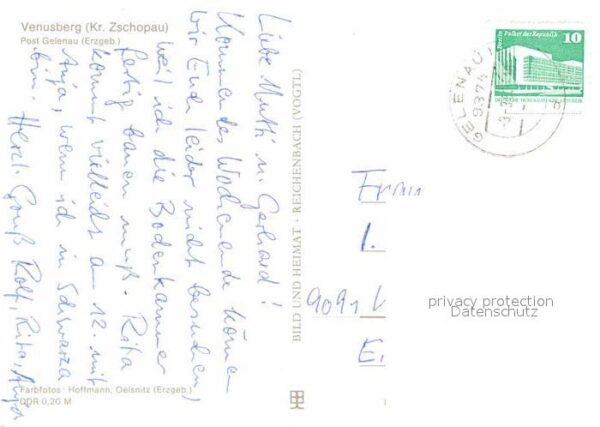 Venusberg (Kr. Zschopau)
Post Gelenau (Erzgeb.)
Liebe Mutti u. Gerhard!
Kommendes Wochenende können
wir Euch leider nicht besuchen,
weil ich die Bodenkammer
fertig bauen muß. Rita
kommt vielleicht am 12. mit
Anja, wenn ich in Schwarza
bin. Herzl. Gruß Rolf, Rita, Anja
Farbfotos: Hoffmann, Oelsnitz (Erzgeb.)
DDR 0,20 M
BILD UND HEIMAT · REICHENBACH (VOGTL)
Berlin, Palast der Republik
10
GELENAU
9374
Frau
I.
9091
E
privacy protection
Datenschutz